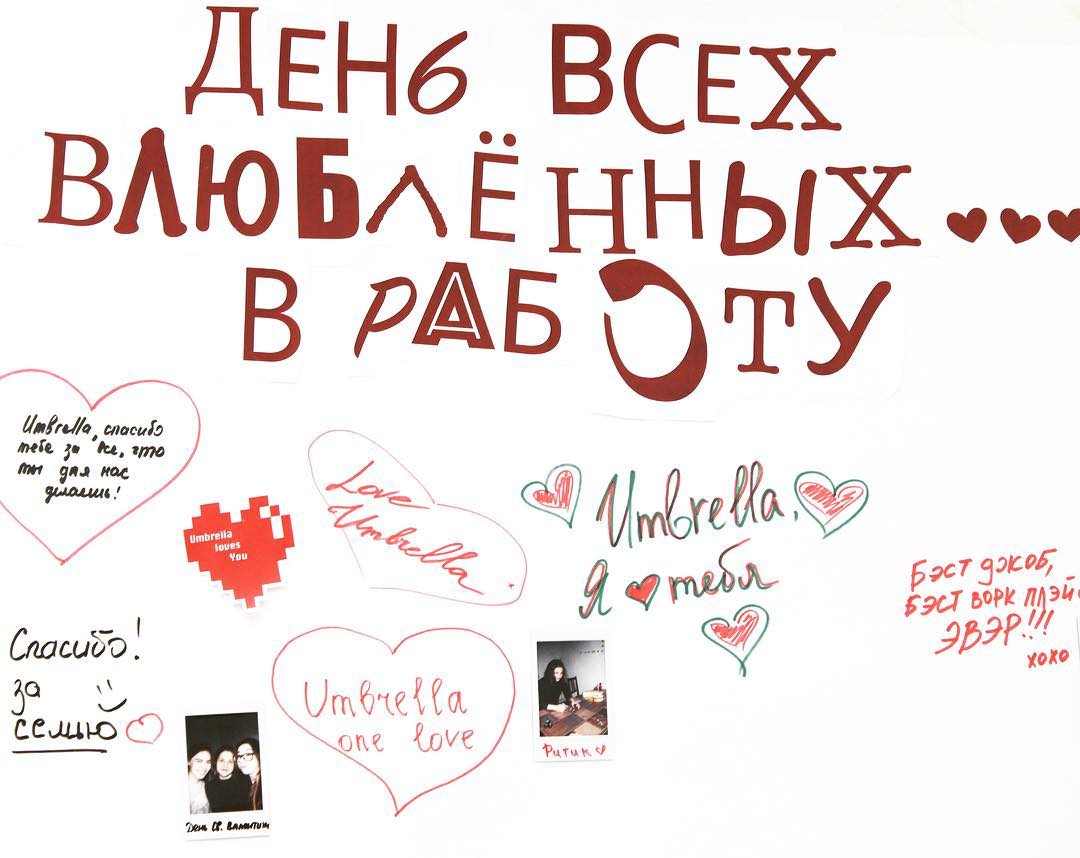 ДЕНЬ ВСЕХ
ВЛЮБЛЁННЫХ
В РАБОТУ
Umbrella, спасибо
тебе за все, что
ты для нас
делаешь!
Umbrella
loves
You
Love
Umbrella
Umbrella,
Я ♥ тебя
Бэст джоб,
Бэст ворк плэйс
ЭВЭР!!!
хохо
Спасибо!
за
семью
Umbrella
one love
Ритик
День Св. Валентин